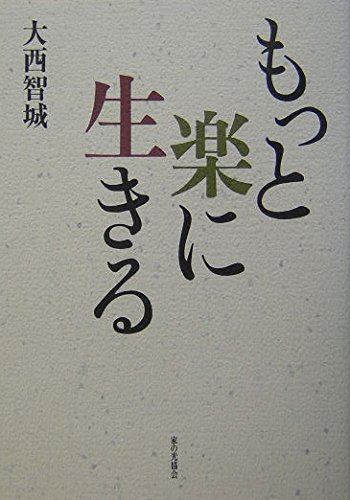 もっと
楽に
生きる
大西智城
家の光協会